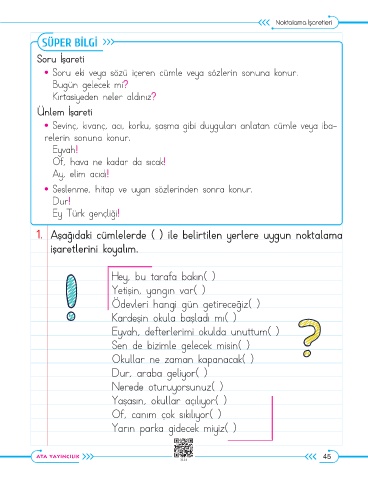 Noktalama İşaretleri
SÜPER BİLGİ
Soru İşareti
• Soru eki veya sözü içeren cümle veya sözlerin sonuna konur.
Bugün gelecek mi?
Kırtasiyeden neler aldınız?
Ünlem İşareti
• Sevinç, kıvanç, acı, korku, şaşma gibi duyguları anlatan cümle veya iba-
relerin sonuna konur.
Eyvah!
Of, hava ne kadar da sıcak!
Ay, elim acıdı!
• Seslenme, hitap ve uyarı sözlerinden sonra konur.
Dur!
Ey Türk gençliği!
1. Aşağıdaki cümlelerde ( ) ile belirtilen yerlere uygun noktalama
işaretlerini koyalım.
Hey, bu tarafa bakın( )
Yetişin, yangın var( )
Ödevleri hangi gün getireceğiz( )
Kardeşin okula başladı mı( )
Eyvah, defterlerimi okulda unuttum( )
Sen de bizimle gelecek misin( )
Okullar ne zaman kapanacak( )
Dur, araba geliyor( )
Nerede oturuyorsunuz( )
Yaşasın, okullar açılıyor( )
Of, canım çok sıkılıyor( )
Yarın parka gidecek miyiz( )
ATA YAYINCILIK
45